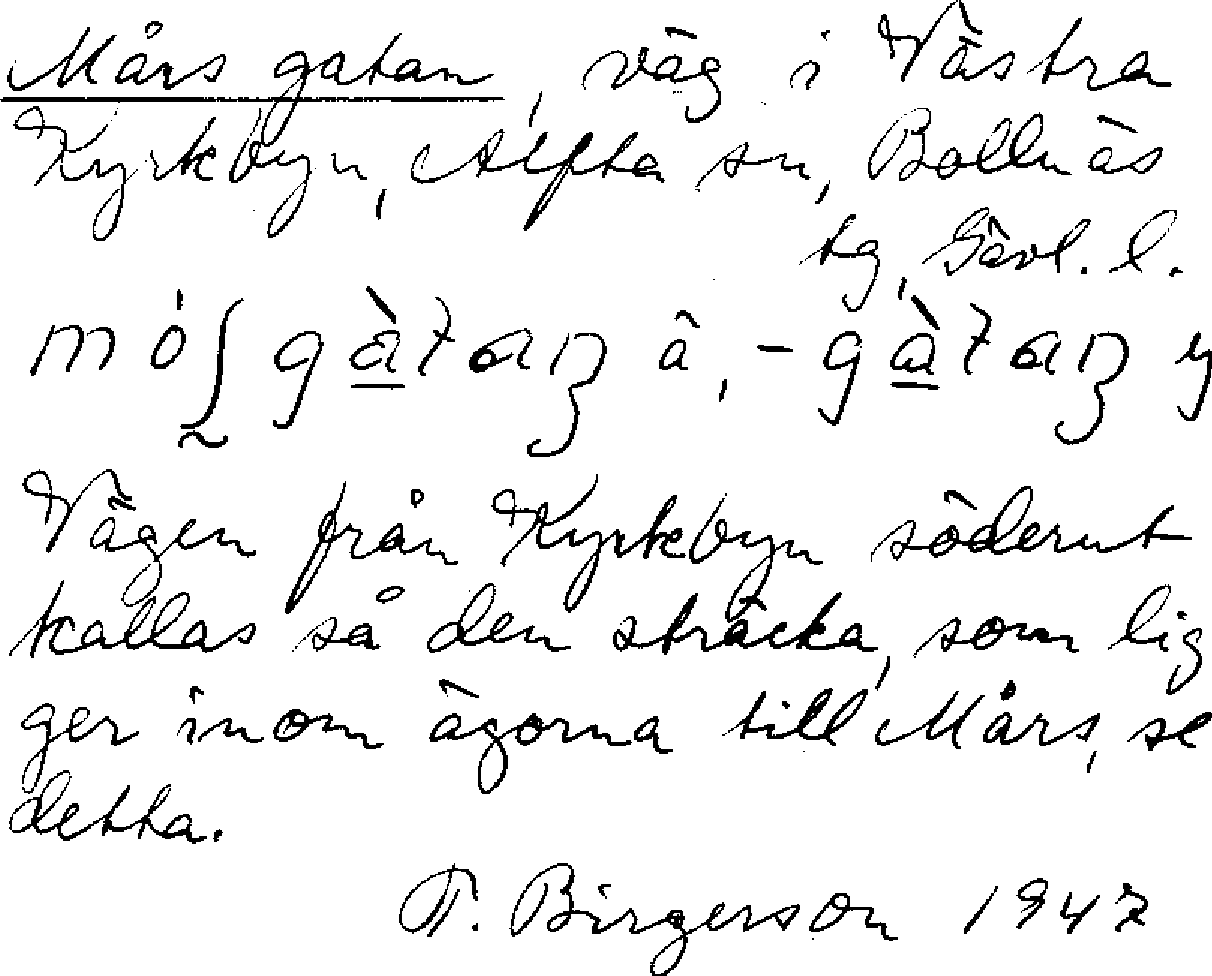 Mårs gatan, väg i Västra
Kyrkbyn, Alfta sn, Bollnäs
tg, Gävl. l.
Vägen från Kyrkbyn söderut
kallas så den sträcka, som lig
ger inom ägorna till Mårs, se
detta.
T. Birgerson 1947